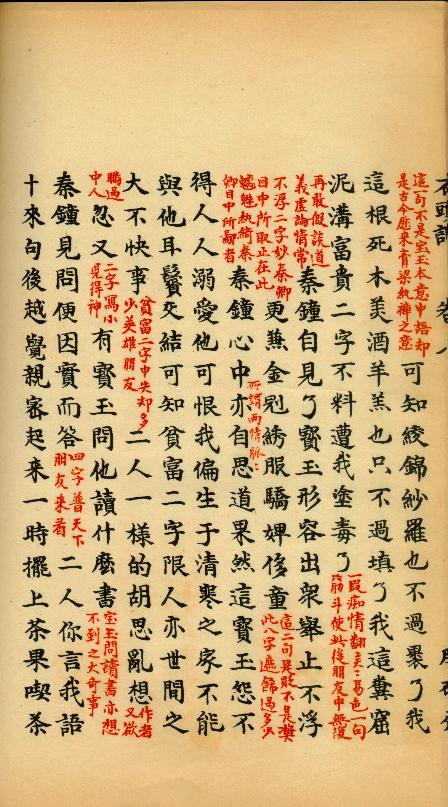 這一句不是寶玉本意中語却
是古今歷來膏粱紈袴之意
可知綾錦紗羅也不過裹了我
這根死木美酒羊羔也只不過填了我這糞窟
泥溝富貴二字不料遭我塗毒了
一段痴情翻美ミ易色一句
筋斗使此後朋友中無復
再敢假談道
義虛論情常
秦鐘自見了寶玉形容出衆舉止不浮
不浮二字妙秦卿
目中所取正在此
更兼金冠綉服驕婢侈童
這二句是貶不是奬
此八字遮飾過多少
魑魅紈綺秦
卿目中所鄙者
秦鐘心中亦自思道果然這寶玉怨不
所謂兩情脉ミ
得人人溺愛他可恨我偏生于清寒之家不能
與他耳鬢交結可知貧富二字限人亦世間之
大不快事
貧富二字中失却多
少英雄朋友
二人一樣的胡思亂想
作者
又欲
瞞過
中人
忽又
二字寫小
兒得神
有寶玉問他讀什麼書
寶玉問讀書亦想
不到之大奇事
秦鐘見問便因實而答
四字普天下
朋友來看
二人你言我語
十來句後越覺親密起來一時擺上茶果喫茶